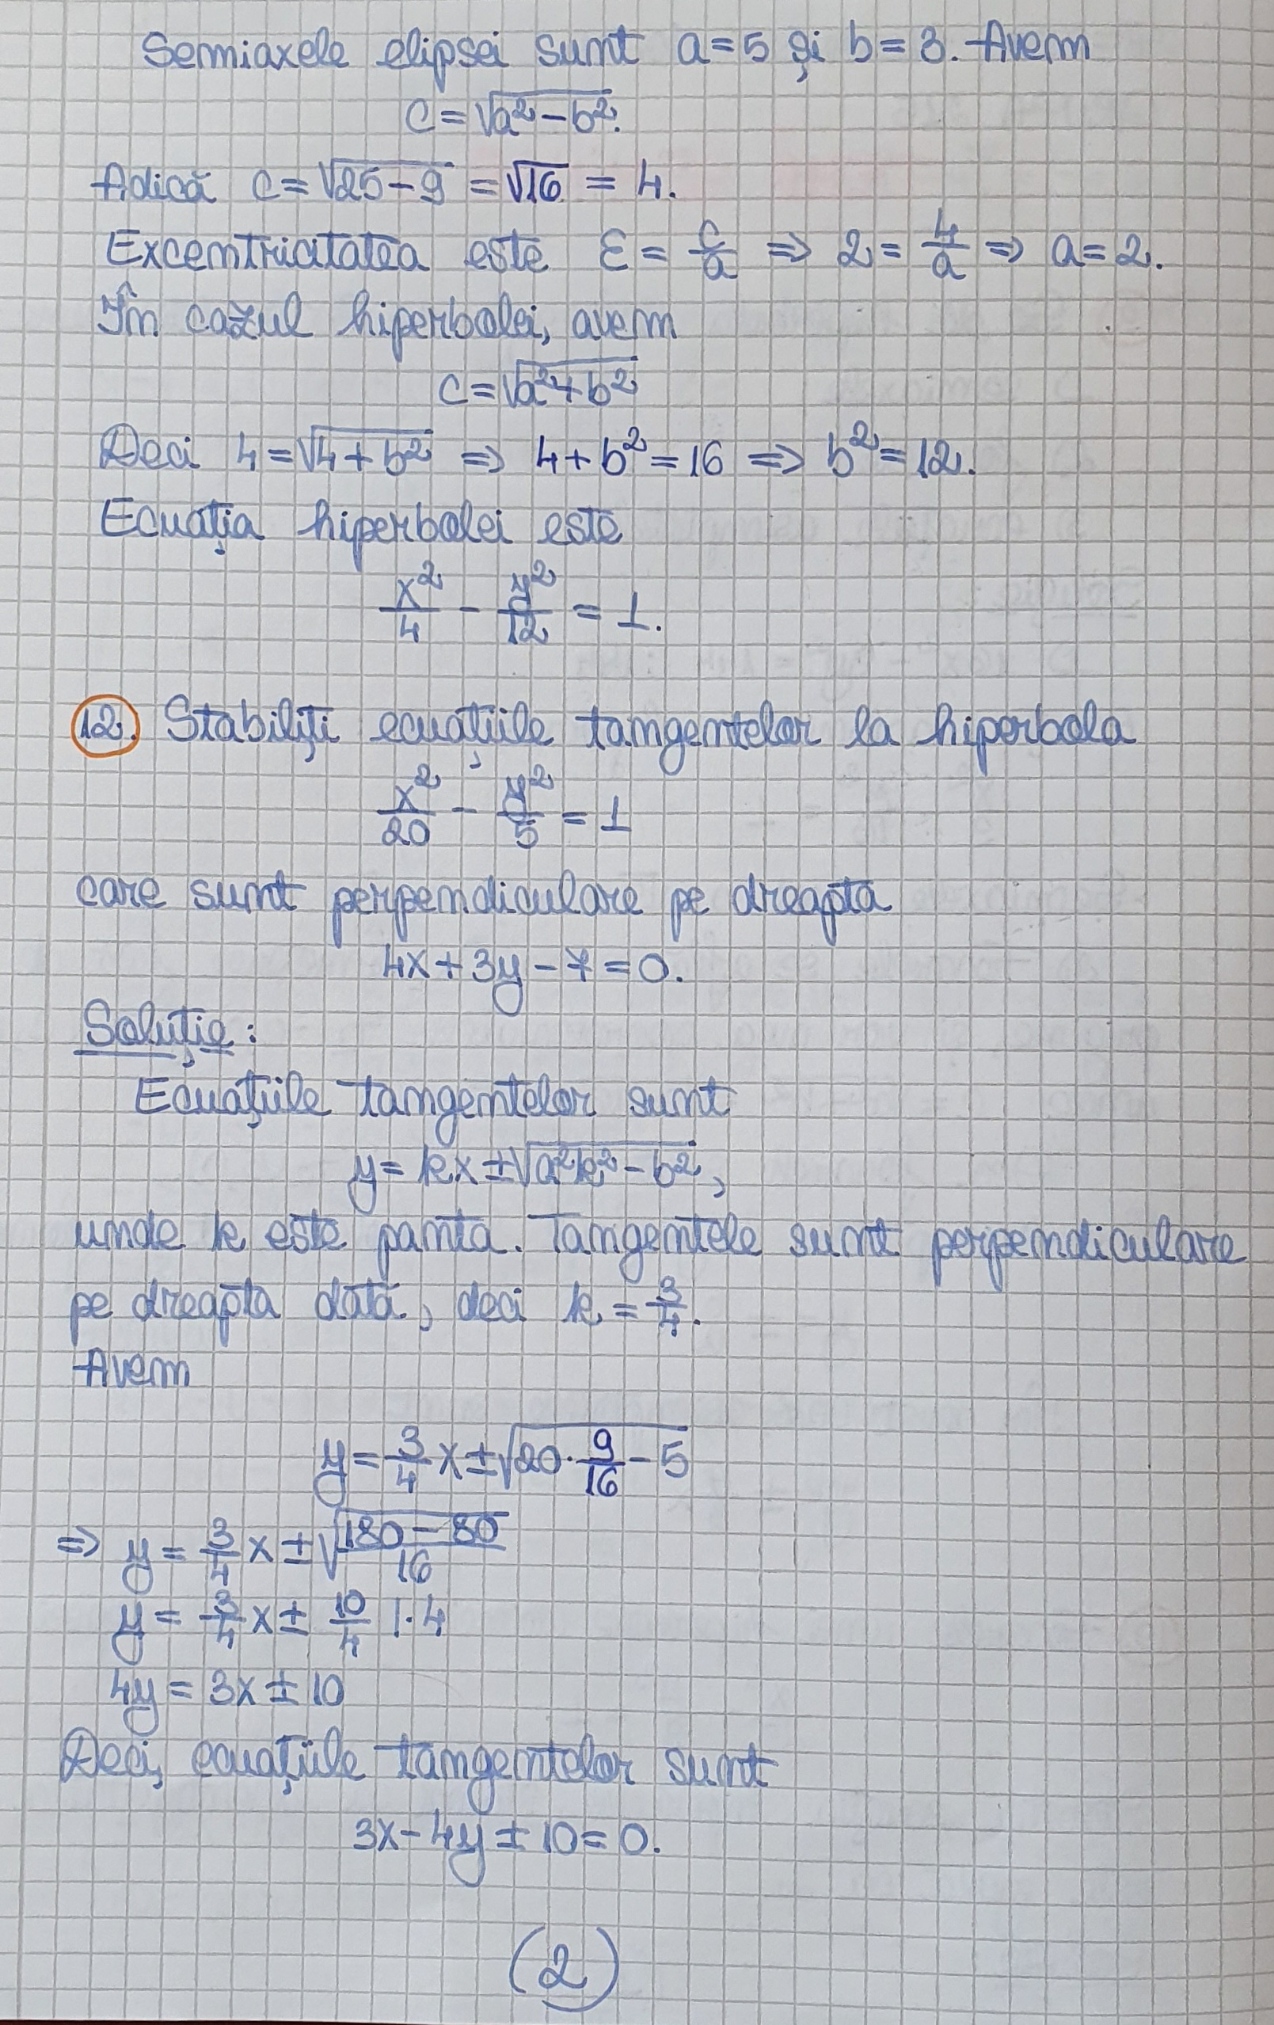 Semiaxele elipsei sunt a=5 și b=3. Avem
c=√(a²-b²).
Adică c=√(25-9) =√16 = 4.
Excentricitatea este ε = c/a ⇒ 2 = 4/a ⇒ a=2.
În cazul hiperbolei, avem
c=√(a²+b²)
Deci 4=√(4+b²) ⇒ 4+b²=16 ⇒ b²=12.
Ecuația hiperbolei este
x²/4 - y²/12 = 1.
12. Stabiliți ecuațiile tangentelor la hiperbola
x²/20 - y²/5 = 1
care sunt perpendiculare pe dreapta
4x+3y-7=0.
Soluție:
Ecuațiile tangentelor sunt
y=kx±√(a²k²-b²),
unde k este panta. Tangentele sunt perpendiculare
pe dreapta dată, deci k=3/4.
Avem
y=3/4 x±√(20·9/16-5)
⇒ y=3/4 x±√((180-80)/16)
y=3/4 x± 10/4 |·4
4y=3x±10
Deci, ecuațiile tangentelor sunt
3x-4y±10=0.
(2)